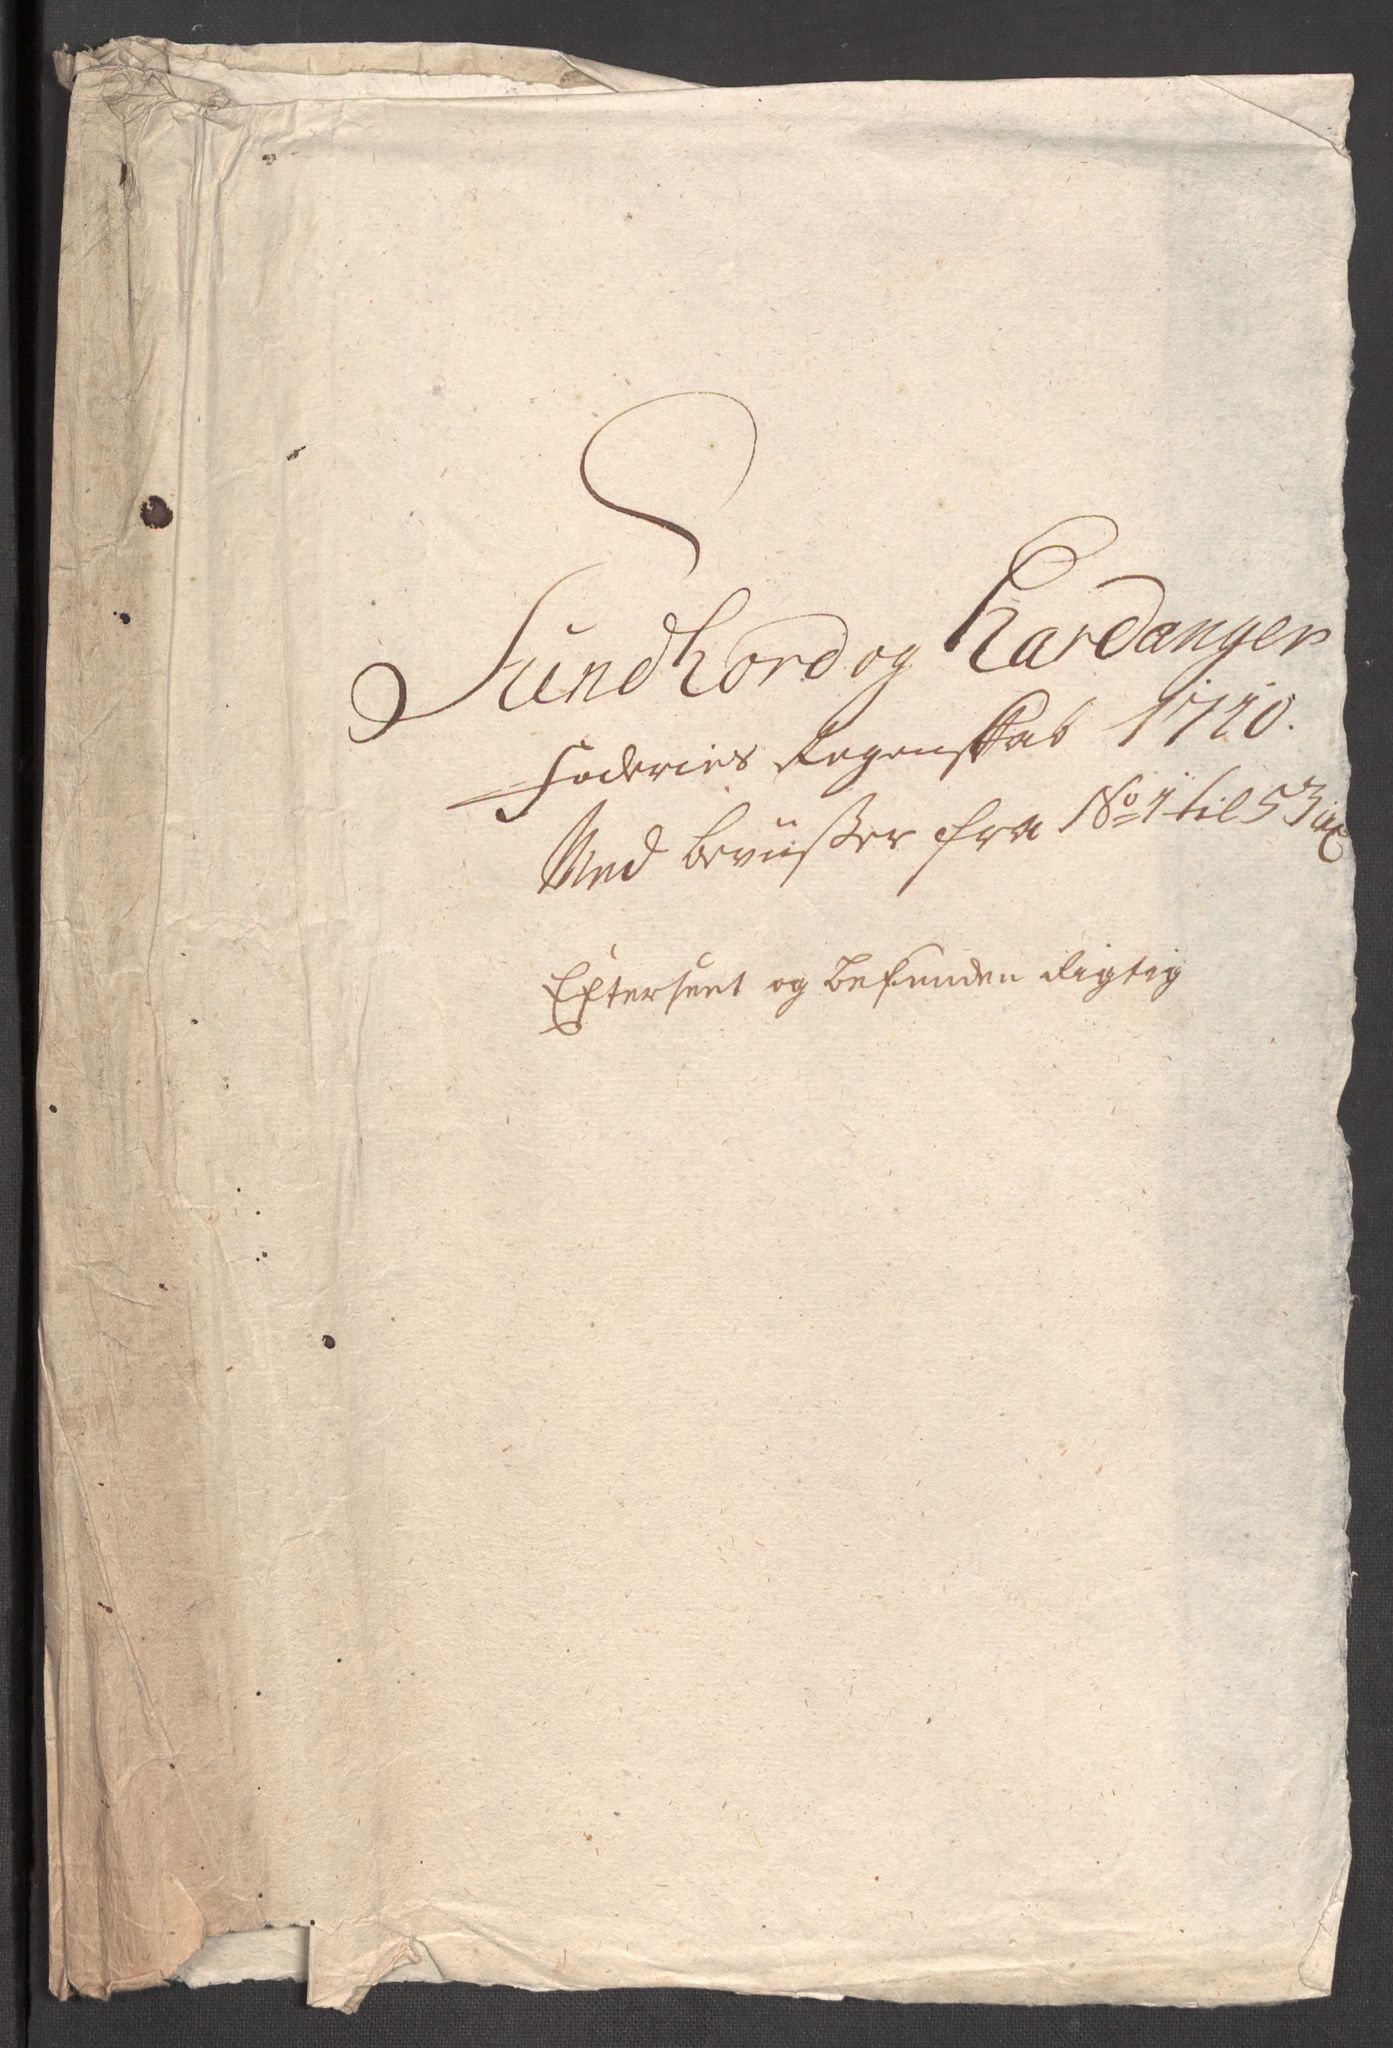 Sundhord og Hardanger
Foderies Regenskab 1710.
Med beviißer fra No 1 til 53
Efterseet og befunden Rigtig